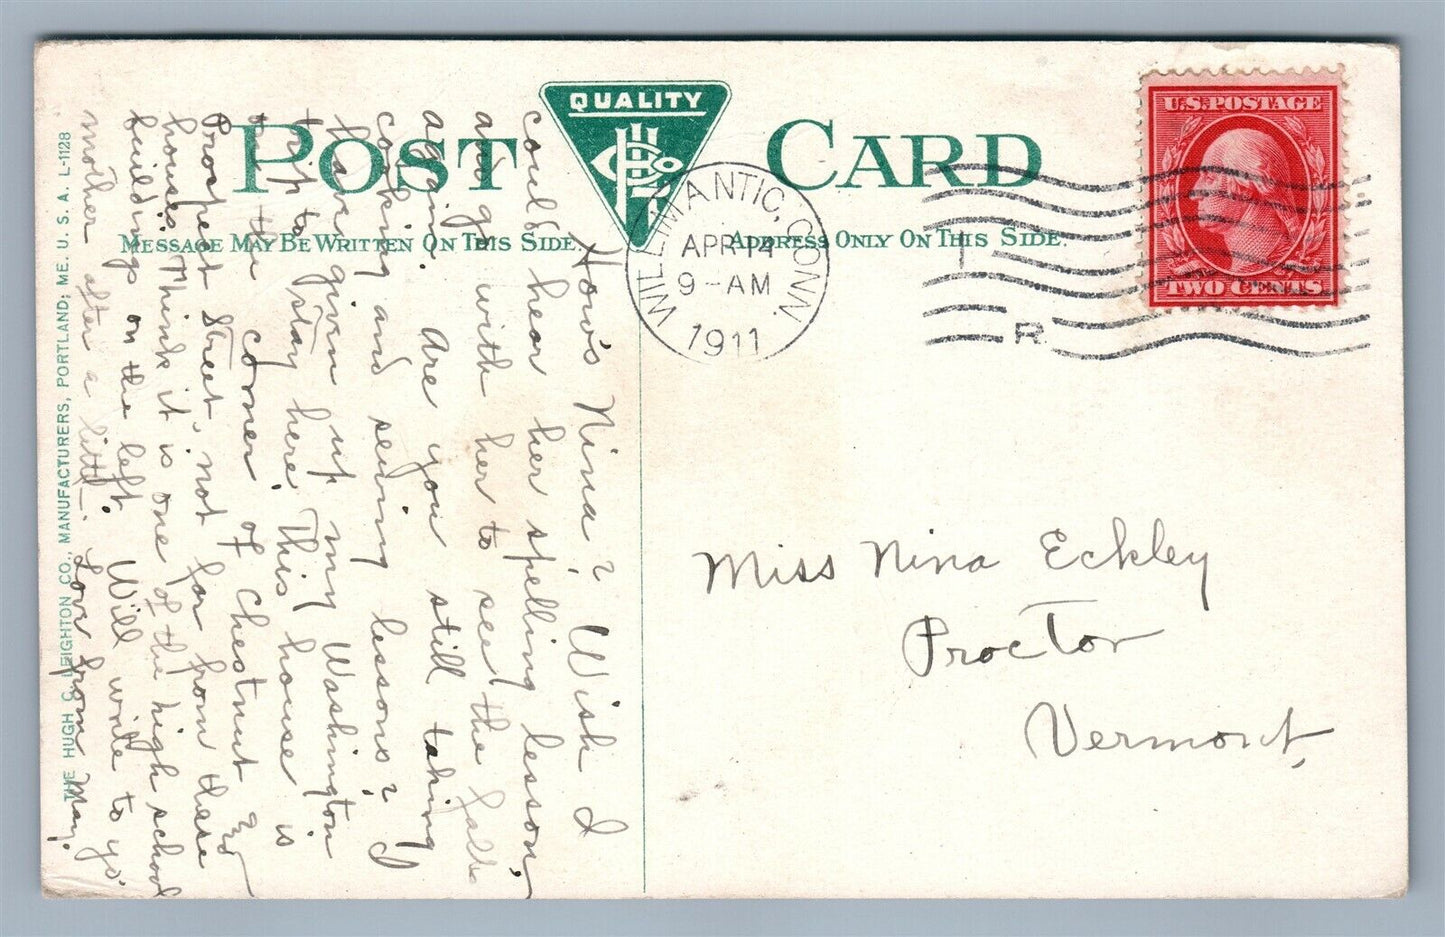 POST CARD
QUALITY
MESSAGE MAY BE WRITTEN ON THIS SIDE.
ADDRESS ONLY ON THIS SIDE.
U.S. POSTAGE
TWO CENTS
WILLIMANTIC, CONN.
APR 14
9-AM
1911
R
How's Nina? Wish I
could hear her spelling lesson,
and go with her to see the falls
again. Are you still taking
cooking and sewing lessons? I
have given up my Washington
trip to stay here. This house is
on the corner of Chestnut and
Prospect Street, not far from these
houses. Think it is one of the high school
buildings on the left. Will write to yo'
mother after a little. Love from May.
Miss Nina Eckley
Proctor
Vermont,
THE HUGH C. LEIGHTON CO., MANUFACTURERS, PORTLAND, ME. U. S. A. L-1128